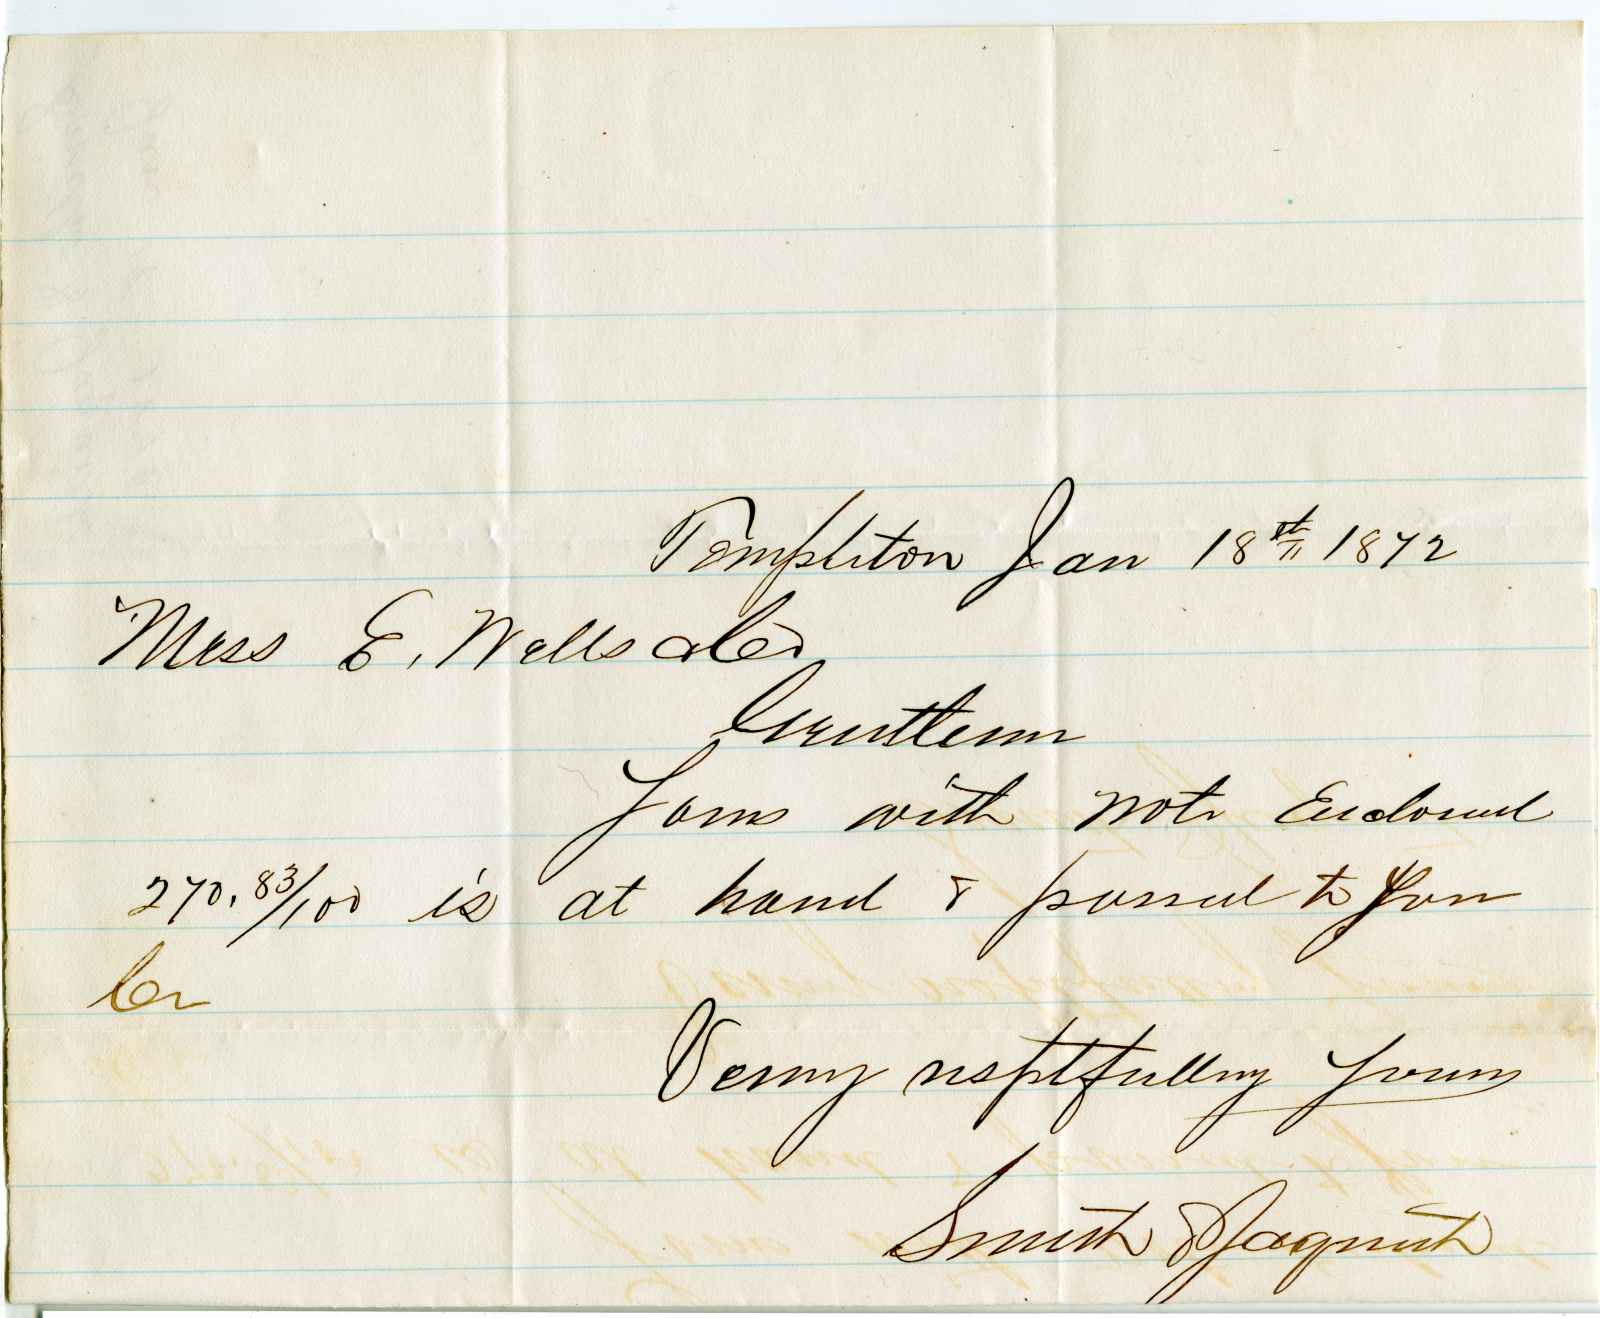 Templeton Jan 18th 1872
Mess E. Wells & Co
Gentlemen
Yours with Note Enclosed
270. 83/100 is at hand & passed to your
Cr
Very respctfully yours
Smith & Jaquith